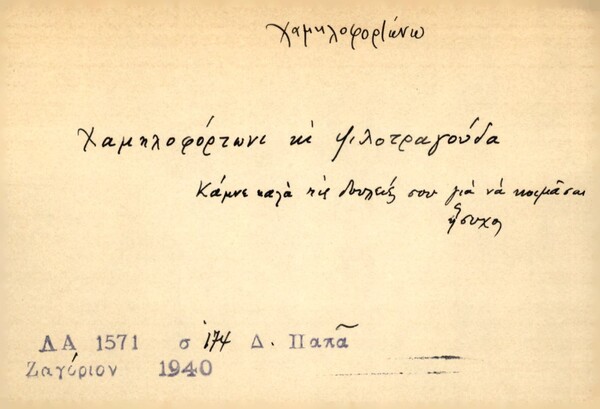 χαμηλοφορτώνω
Χαμηλοφόρτωνι κι ψιλοτραγούδα
Κάμνε καλά τις δουλειές σου γιά νά κοιμᾶσαι
ἥσυχος
ΛΑ 1571 σ 174 Δ. Παπᾶ
Ζαγόριον 1940